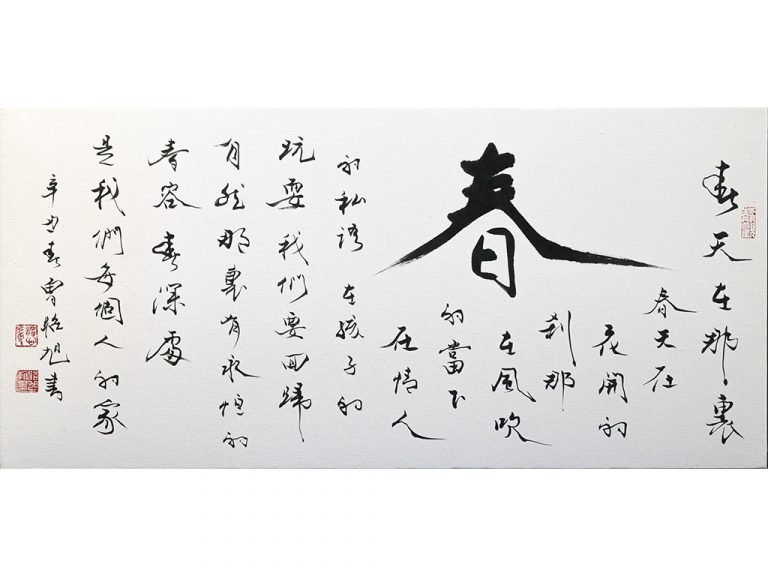 春天在那裏
春
春天在
花開的
刹那
在風吹
的當下
在情人
的私語在孩子的
玩耍我們要回歸
自然那裏有永恆的
春容春深處
是我們每個人的家
辛丑春曾昭旭書